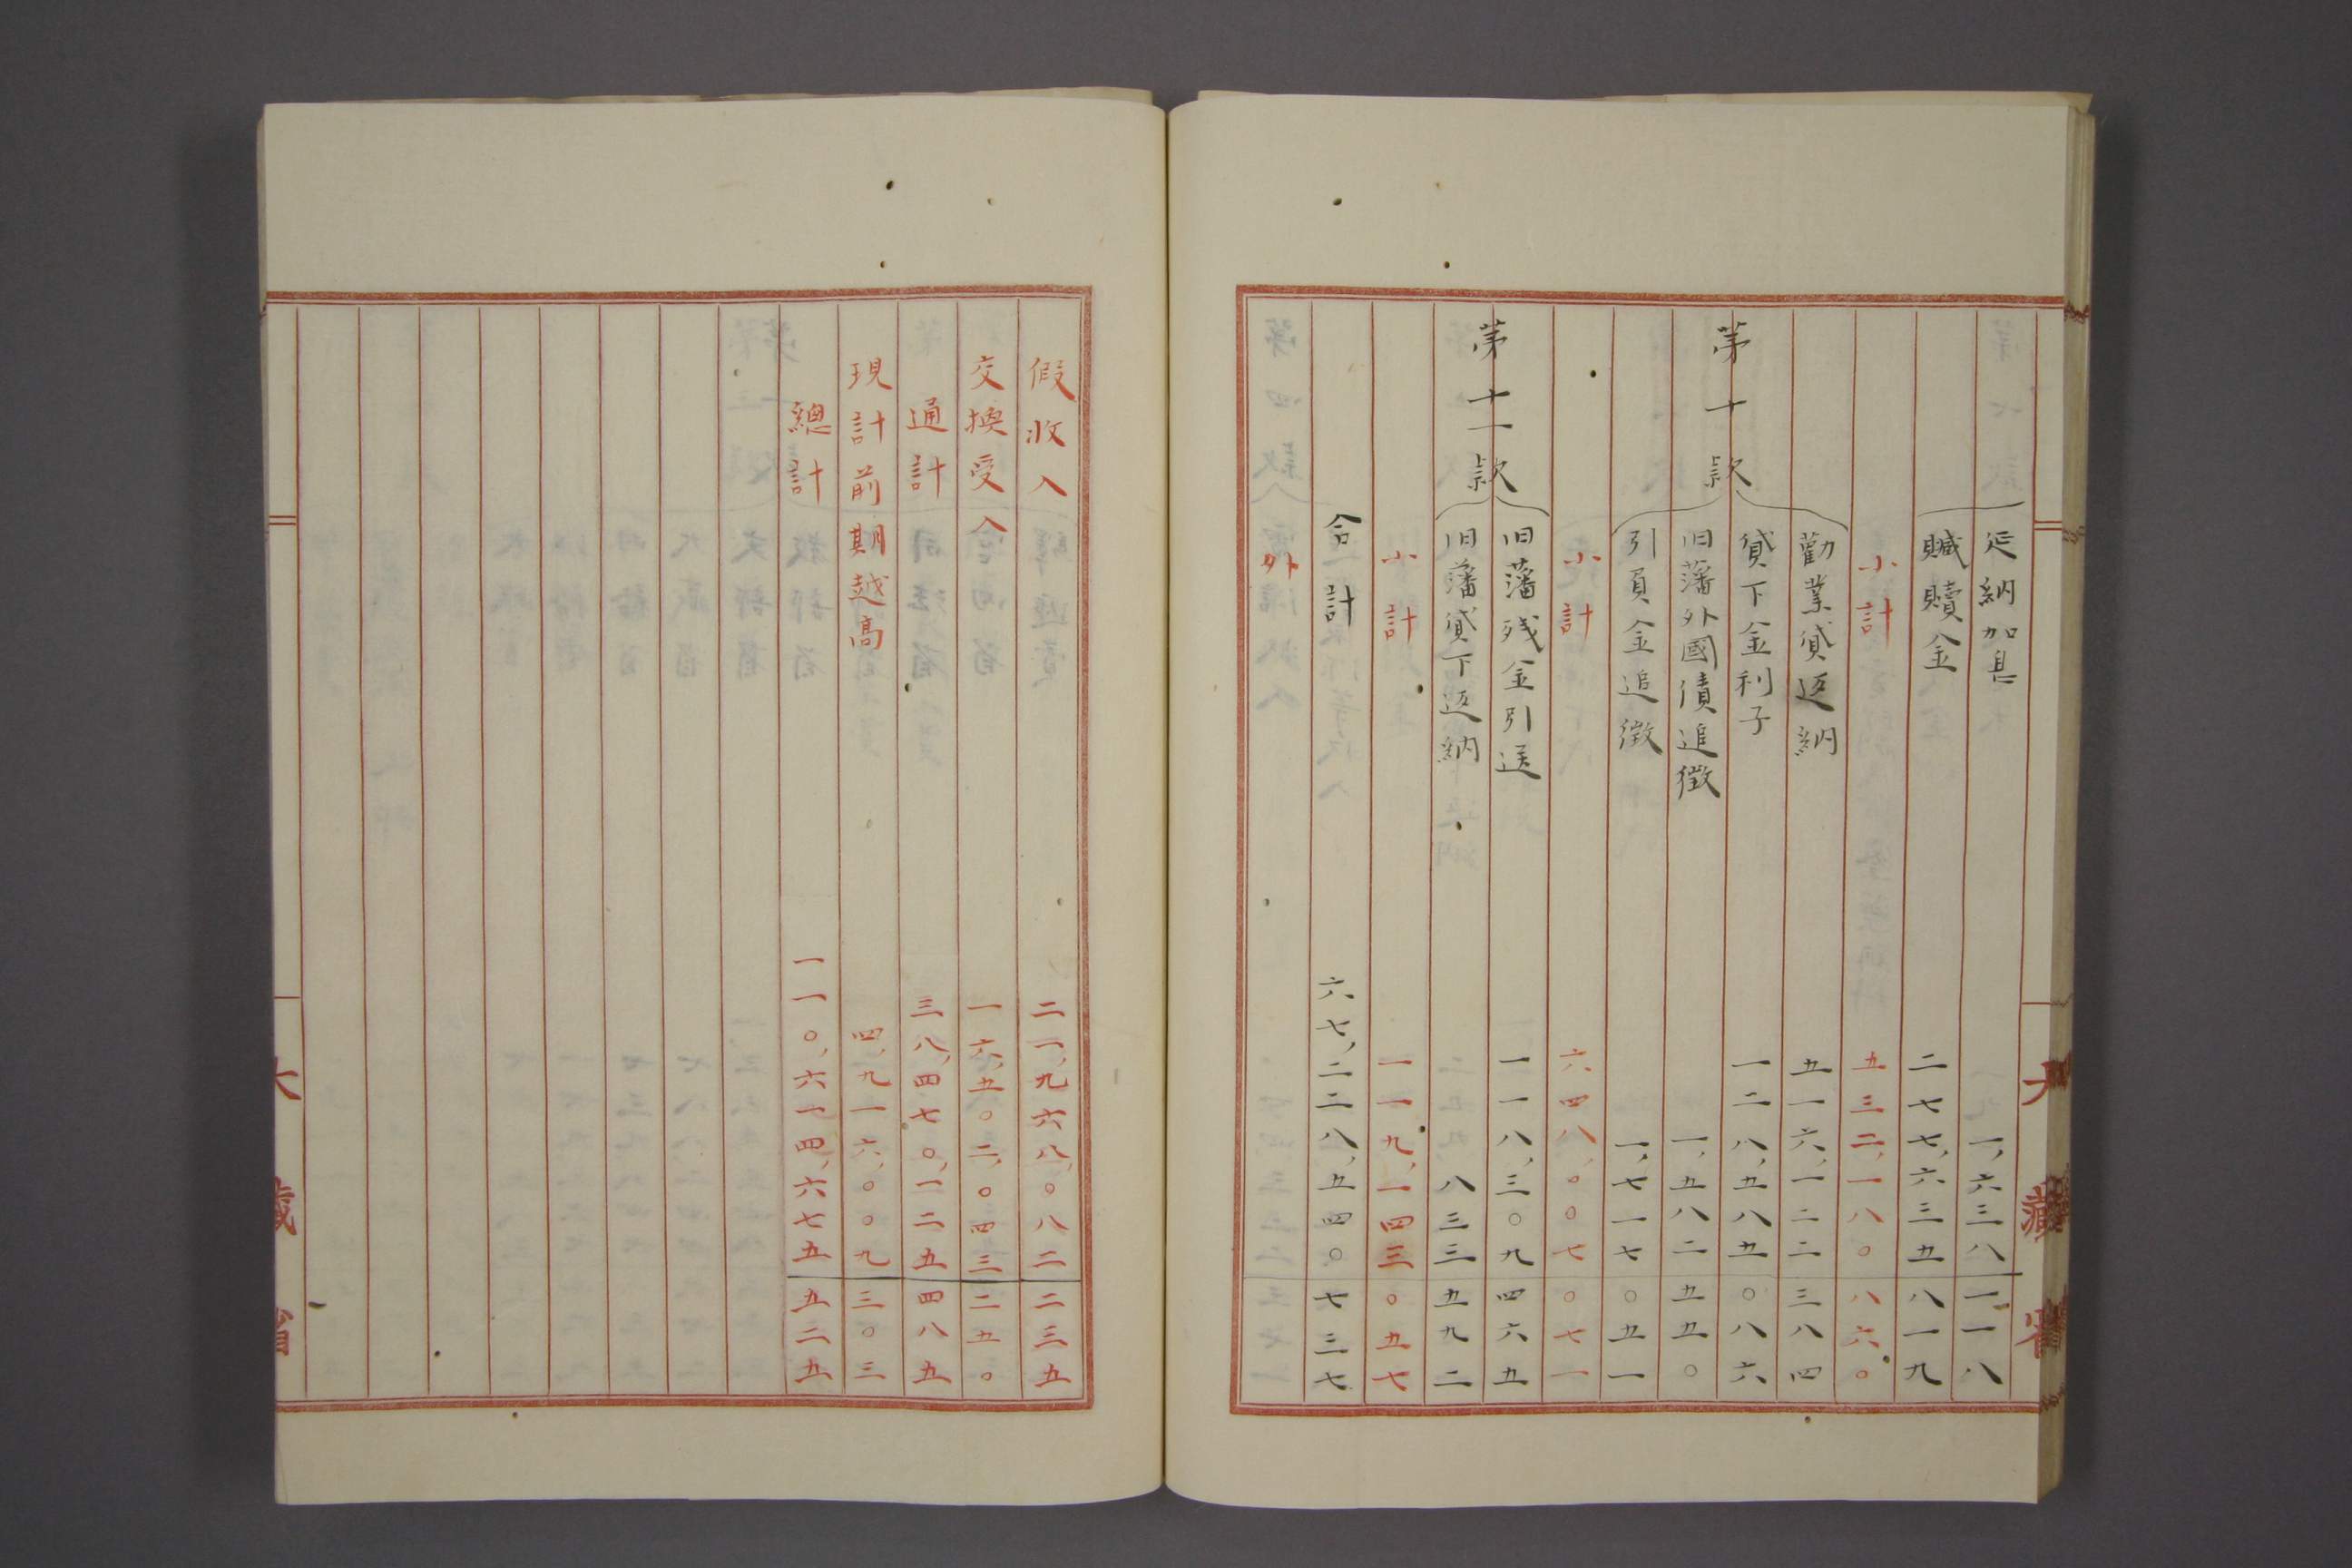 大藏省
延納加息 一,六三八 一一八
贓贖金 二七七,六三五 八一九
小計 五三二,一八〇 八六〇
第十款
勸業貸返納 五一六,一二二 三八四
貸下金利子 一二八,五八五 〇八六
旧藩外國債追徴 一,五八二 五五〇
引負金追徴 一,七一七 〇五一
小計 六四八,〇〇七 〇七一
第十一款
旧藩残金引送 一一八,三〇九 四六五
旧藩貸下返納 八三三 五九二
小計 一一九,一四三 〇五七
合計 六七,二二八,五四〇 七三七
外
假收入 二一,九六八,〇八二 二三五
交換受入 一六,五〇二,〇四三 二五〇
通計 三八,四七〇,一二五 四八五
現計前期越高 四,九一六,〇〇九 三〇三
總計 一一〇,六一四,六七五 五二五
大藏省